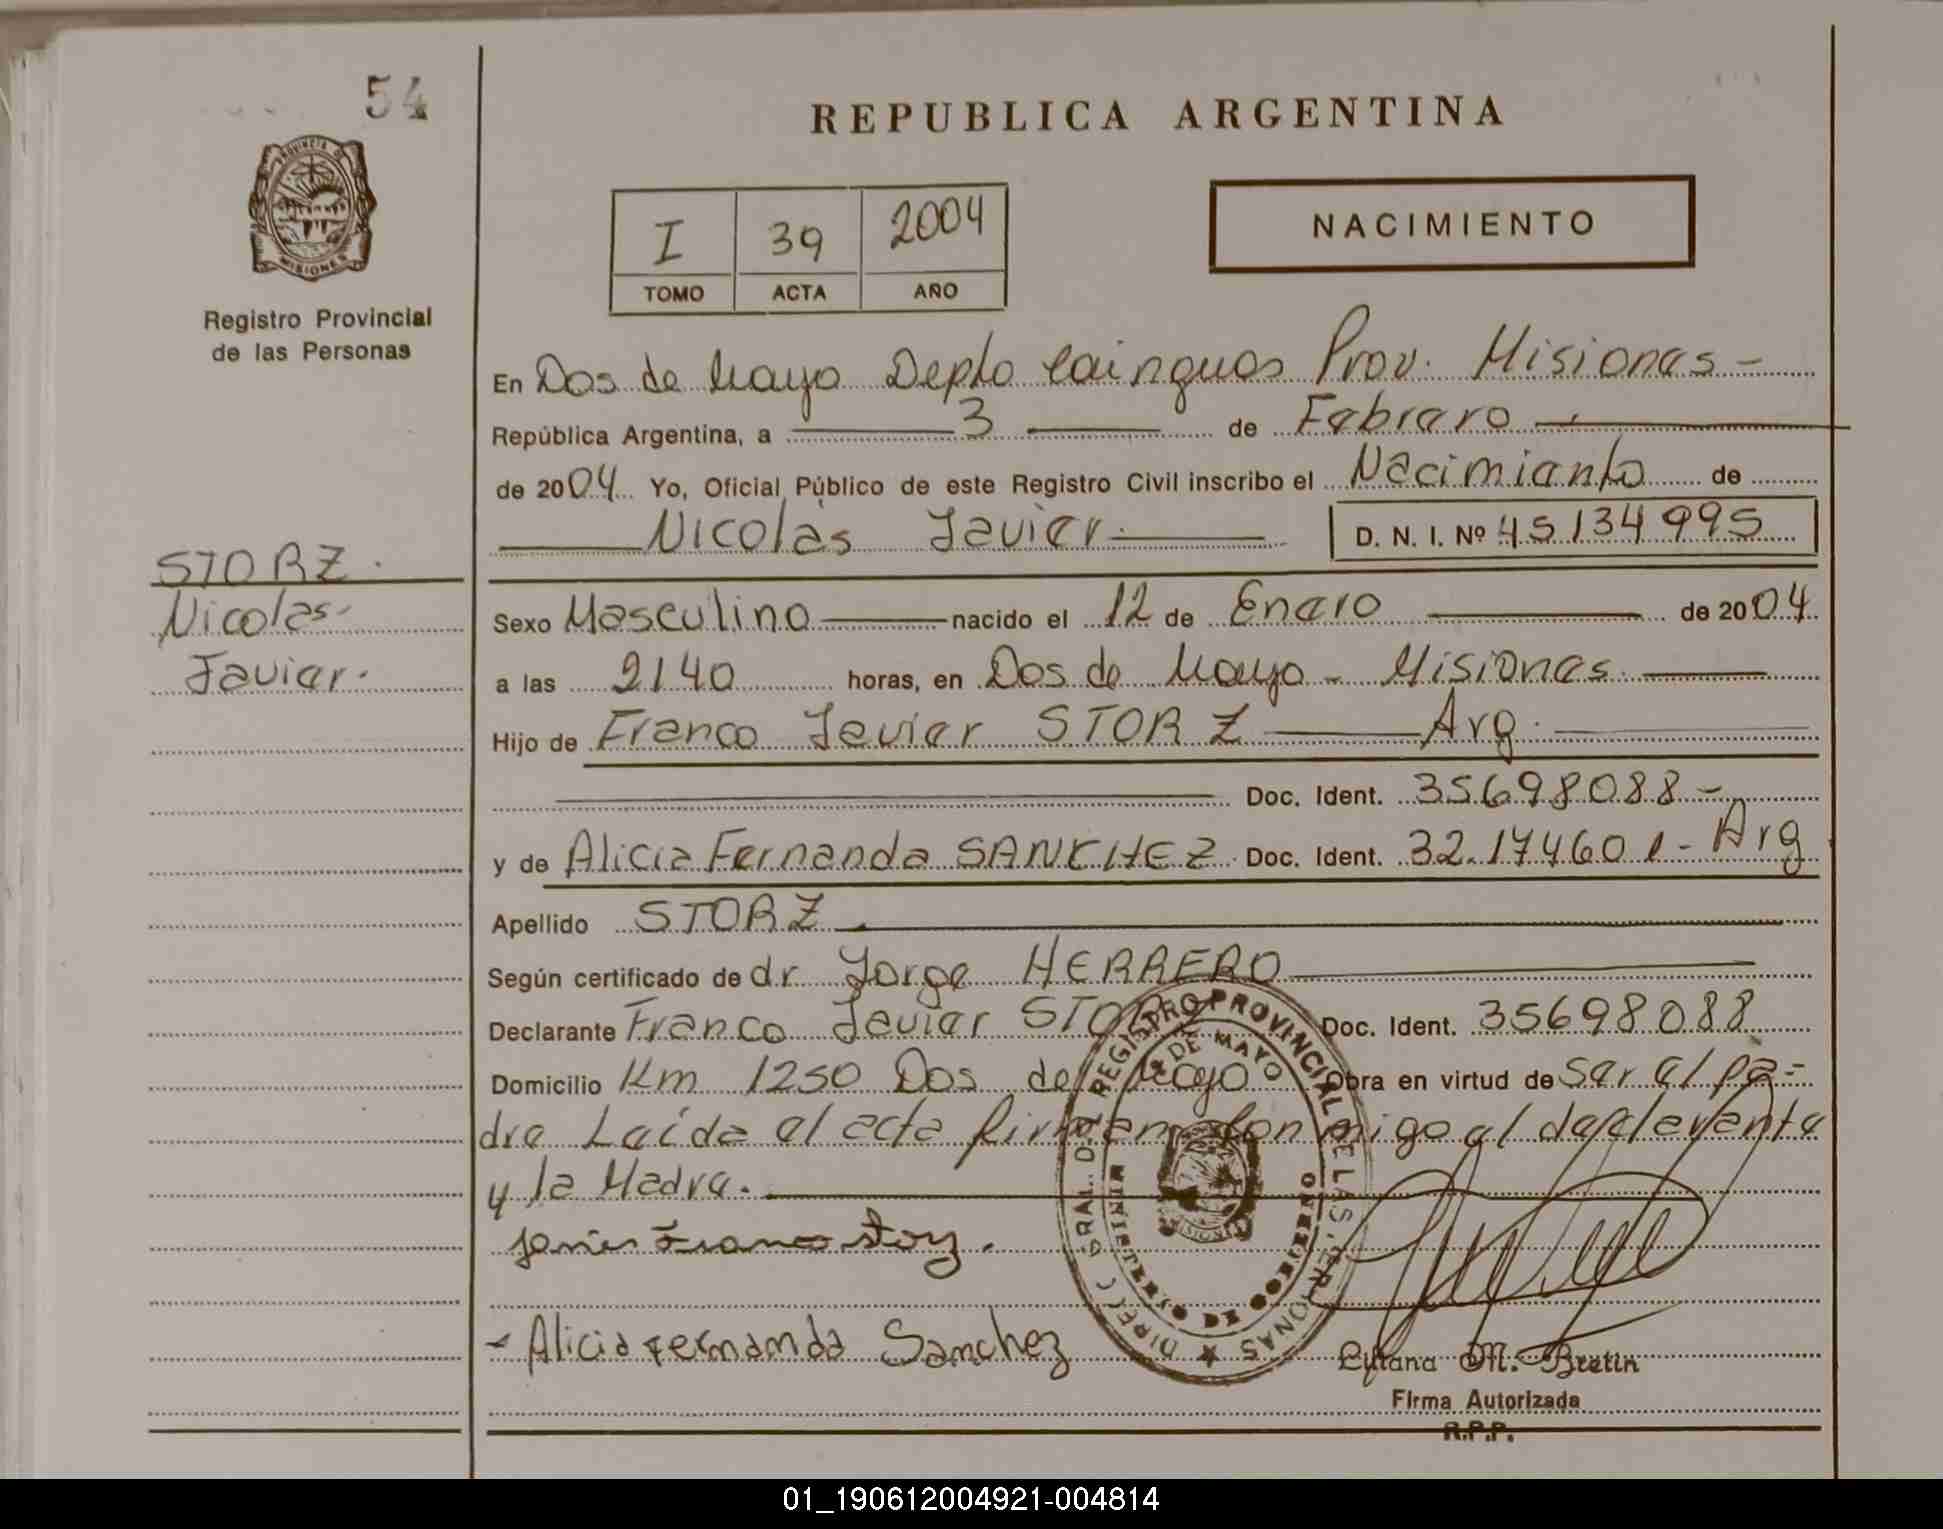 54
REPUBLICA ARGENTINA
PROVINCIA DE
MISIONES
Registro Provincial
de las Personas
I 39 2004
TOMO ACTA AÑO
NACIMIENTO
En Dos de Mayo Depto Cainguas Prov. Misiones -
República Argentina, a 3 de Febrero
de 2004. Yo, Oficial Público de este Registro Civil inscribo el Nacimiento de
Nicolás Javier. D. N. I. Nº 45134995
STORZ.
Nicolas
Javier.
Sexo Masculino nacido el 12 de Enero de 2004.
a las 2140 horas, en Dos de Mayo - Misiones.
Hijo de Franco Javier STORZ Arg.
Doc. Ident. 35698088 -
y de Alicia Fernanda SANCHEZ Doc. Ident. 32.174601 - Arg
Apellido STORZ.
Según certificado de dr Jorge HERRERO
Declarante Franco Javier STORZ Doc. Ident. 35698088
Domicilio Km 1250 Dos de Mayo Obra en virtud de ser el pa-
dre Leída el acta firman conmigo el
y la Madre.
Javier Franco Storz.
- Alicia Fernanda Sanchez
DIRECC. GRAL. DEL REGISTRO PROVINCIAL DE LAS PERSONAS
2 DE MAYO
MINISTERIO DE GOBIERNO
M. Bretin
Firma Autorizada
R.P.P.
01_190612004921-004814